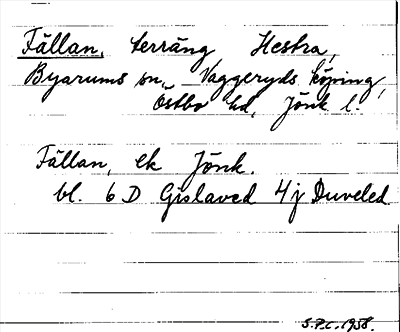 Fällan, terräng Hestra,
Byarums sn, Vaggeryds köping,
Östbo hd, Jönk l.
Fällan, ek Jönk.
bl. 6 D Gislaved 4 j Duveled
S.P.C. 1958.